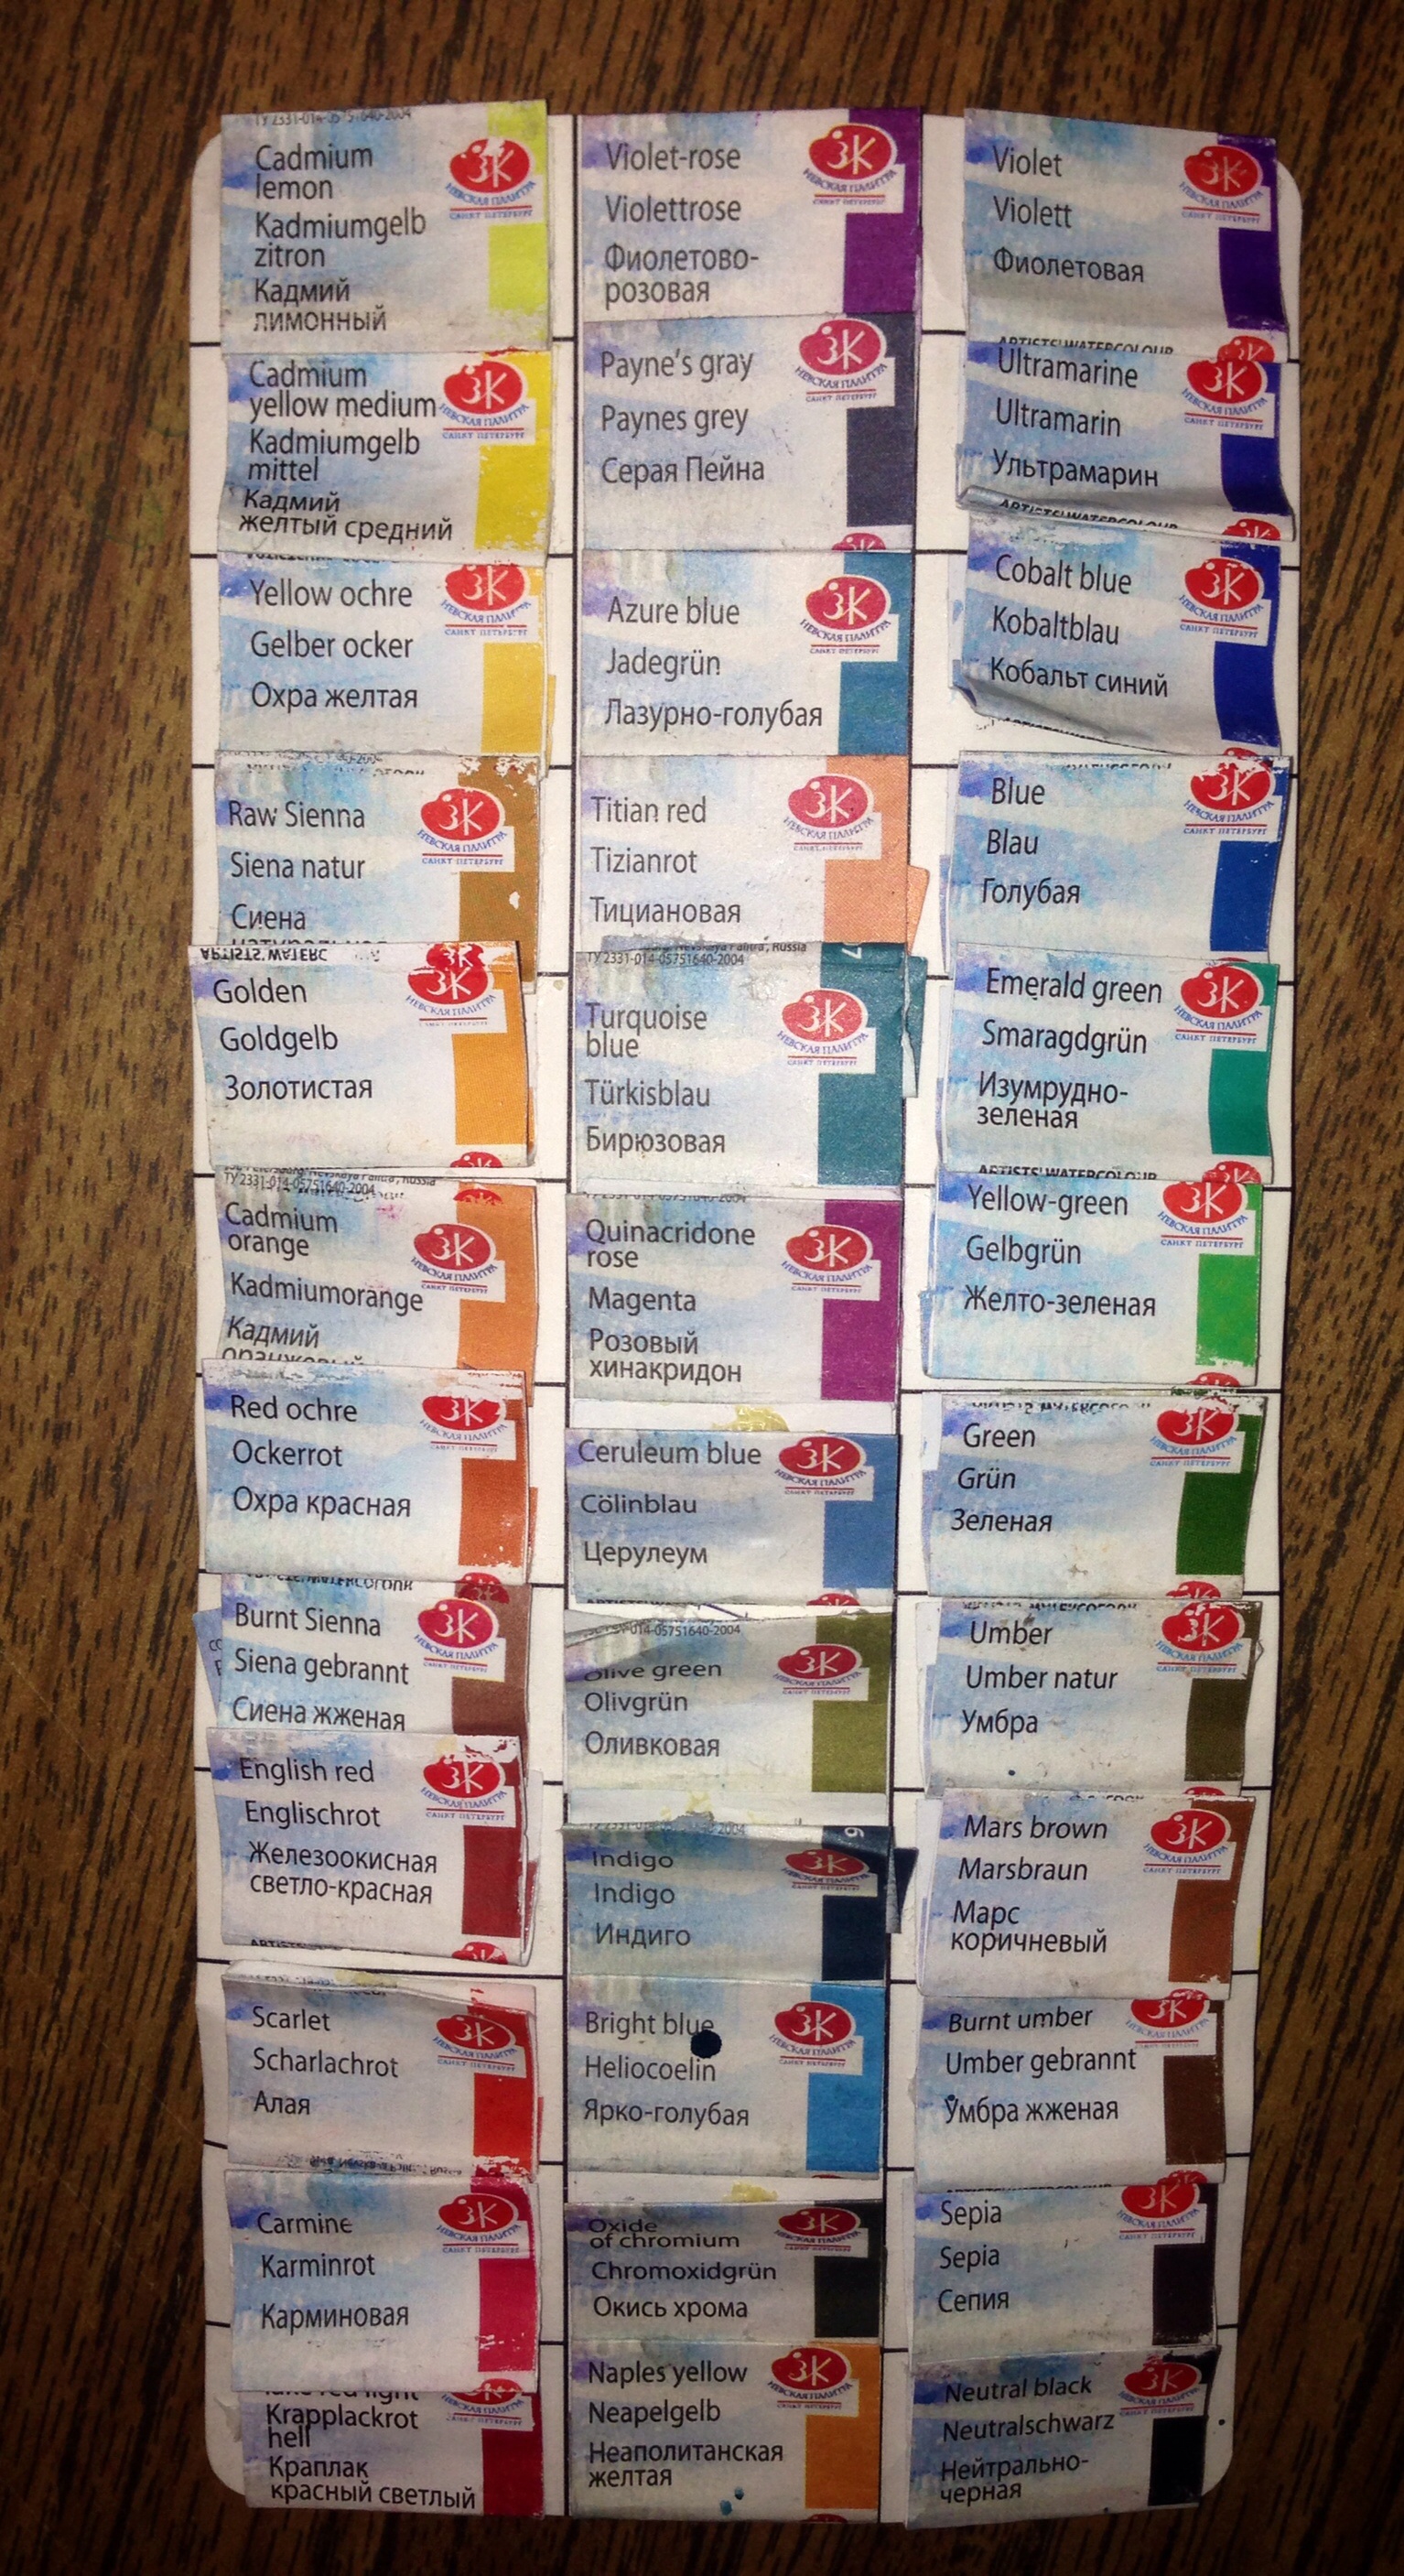 ТУ 2331-014-05751640-2004
Cadmium
lemon
Kadmiumgelb
zitron
Кадмий
лимонный
ЗК
НЕВСКАЯ ПАЛИТРА
САНКТ ПЕТЕРБУРГ
Cadmium
yellow medium
Kadmiumgelb
mittel
Кадмий
желтый средний
ЗК
НЕВСКАЯ ПАЛИТРА
САНКТ ПЕТЕРБУРГ
Yellow ochre
Gelber ocker
Охра желтая
ЗК
НЕВСКАЯ ПАЛИТРА
САНКТ ПЕТЕРБУРГ
Raw Sienna
Siena natur
Сиена
ЗК
НЕВСКАЯ ПАЛИТРА
САНКТ ПЕТЕРБУРГ
ARTISTS' WATERC
Golden
Goldgelb
Золотистая
ЗК
НЕВСКАЯ ПАЛИТРА
САНКТ ПЕТЕРБУРГ
ТУ 2331-014-05751640-2004
Cadmium
orange
Kadmiumorange
Кадмий
оранжевый
ЗК
НЕВСКАЯ ПАЛИТРА
САНКТ ПЕТЕРБУРГ
Red ochre
Ockerrot
Охра красная
ЗК
НЕВСКАЯ ПАЛИТРА
САНКТ ПЕТЕРБУРГ
Burnt Sienna
Siena gebrannt
Сиена жженая
ЗК
НЕВСКАЯ ПАЛИТРА
САНКТ ПЕТЕРБУРГ
English red
Englischrot
Железоокисная
светло-красная
ЗК
НЕВСКАЯ ПАЛИТРА
САНКТ ПЕТЕРБУРГ
Scarlet
Scharlachrot
Алая
ЗК
НЕВСКАЯ ПАЛИТРА
САНКТ ПЕТЕРБУРГ
Carmine
Karminrot
Карминовая
ЗК
НЕВСКАЯ ПАЛИТРА
САНКТ ПЕТЕРБУРГ
Krapplackrot
hell
Краплак
красный светлый
НЕВСКАЯ ПАЛИТРА
САНКТ ПЕТЕРБУРГ
Violet-rose
Violettrose
Фиолетово-
розовая
ЗК
НЕВСКАЯ ПАЛИТРА
САНКТ ПЕТЕРБУРГ
Payne's gray
Paynes grey
Серая Пейна
ЗК
НЕВСКАЯ ПАЛИТРА
САНКТ ПЕТЕРБУРГ
Azure blue
Jadegrün
Лазурно-голубая
ЗК
НЕВСКАЯ ПАЛИТРА
САНКТ ПЕТЕРБУРГ
Titian red
Tizianrot
Тициановая
ЗК
НЕВСКАЯ ПАЛИТРА
САНКТ ПЕТЕРБУРГ
Nevskaya Palitra', Russia
ТУ 2331-014-05751640-2004
Turquoise
blue
Türkisblau
Бирюзовая
ЗК
НЕВСКАЯ ПАЛИТРА
САНКТ ПЕТЕРБУРГ
Quinacridone
rose
Magenta
Розовый
хинакридон
ЗК
НЕВСКАЯ ПАЛИТРА
САНКТ ПЕТЕРБУРГ
Ceruleum blue
Cölinblau
Церулеум
ЗК
НЕВСКАЯ ПАЛИТРА
САНКТ ПЕТЕРБУРГ
014-05751640-2004
Olive green
Olivgrün
Оливковая
ЗК
НЕВСКАЯ ПАЛИТРА
САНКТ ПЕТЕРБУРГ
Indigo
Indigo
Индиго
ЗК
НЕВСКАЯ ПАЛИТРА
САНКТ ПЕТЕРБУРГ
Bright blue
Heliocoelin
Ярко-голубая
ЗК
НЕВСКАЯ ПАЛИТРА
САНКТ ПЕТЕРБУРГ
Oxide
of chromium
Chromoxidgrün
Окись хрома
ЗК
НЕВСКАЯ ПАЛИТРА
САНКТ ПЕТЕРБУРГ
Naples yellow
Neapelgelb
Неаполитанская
желтая
ЗК
НЕВСКАЯ ПАЛИТРА
САНКТ ПЕТЕРБУРГ
Violet
Violett
Фиолетовая
ЗК
НЕВСКАЯ ПАЛИТРА
САНКТ ПЕТЕРБУРГ
ARTISTS' WATERCOLOUR
Ultramarine
Ultramarin
Ультрамарин
ЗК
НЕВСКАЯ ПАЛИТРА
САНКТ ПЕТЕРБУРГ
ARTISTS' WATERCOLOUR
Cobalt blue
Kobaltblau
Кобальт синий
ЗК
НЕВСКАЯ ПАЛИТРА
САНКТ ПЕТЕРБУРГ
Blue
Blau
Голубая
ЗК
НЕВСКАЯ ПАЛИТРА
САНКТ ПЕТЕРБУРГ
Emerald green
Smaragdgrün
Изумрудно-
зеленая
ЗК
НЕВСКАЯ ПАЛИТРА
САНКТ ПЕТЕРБУРГ
ARTISTS' WATERCOLOUR
Yellow-green
Gelbgrün
Желто-зеленая
ЗК
НЕВСКАЯ ПАЛИТРА
САНКТ ПЕТЕРБУРГ
Green
Grün
Зеленая
ЗК
НЕВСКАЯ ПАЛИТРА
САНКТ ПЕТЕРБУРГ
Umber
Umber natur
Умбра
ЗК
НЕВСКАЯ ПАЛИТРА
САНКТ ПЕТЕРБУРГ
Mars brown
Marsbraun
Марс
коричневый
ЗК
НЕВСКАЯ ПАЛИТРА
САНКТ ПЕТЕРБУРГ
Burnt umber
Umber gebrannt
Умбра жженая
ЗК
НЕВСКАЯ ПАЛИТРА
САНКТ ПЕТЕРБУРГ
Sepia
Sepia
Сепия
ЗК
НЕВСКАЯ ПАЛИТРА
САНКТ ПЕТЕРБУРГ
Neutral black
Neutralschwarz
Нейтрально-
черная
ЗК
НЕВСКАЯ ПАЛИТРА
САНКТ ПЕТЕРБУРГ